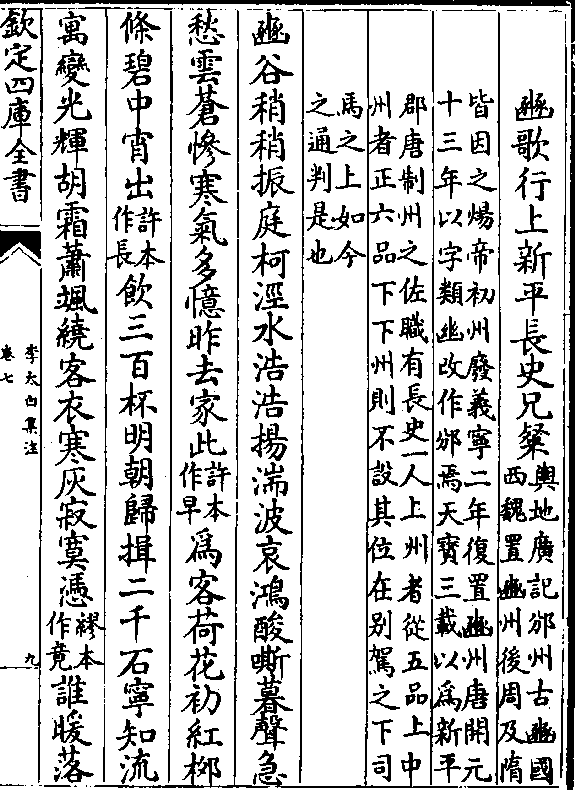 豳歌行上新平長史兄粲輿地廣記邠州古豳國
西魏置豳州後周及隋
皆因之煬帝初州廢義寧二年復置豳州唐開元
十三年以字類幽改作邠焉天寶三載以爲新平
郡唐制州之佐職有長史一人上州者從五品上中
州者正六品下下州則不設其位在別駕之下司
馬之上如今
之通判是也
豳谷稍稍振庭柯涇水浩浩揚湍波哀鴻酸嘶暮聲急
愁雲蒼慘寒氣多憶昨去家此許本作早爲客荷花初紅栁
條碧中宵出許本作長飲三百杯明朝歸揖二千石寧知流
寓變光輝胡霜蕭颯繞客衣寒灰寂寞憑繆本作竟誰暖落
欽定四庫全書
李太白集注
卷七
九